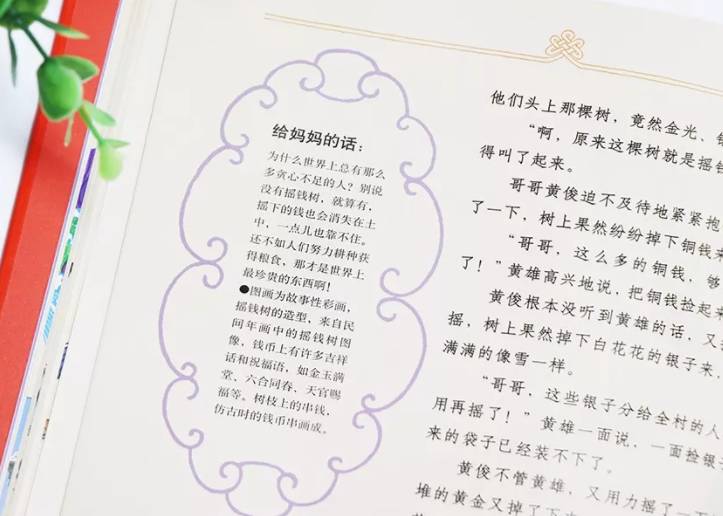 给妈妈的话：
为什么世界上总有那么
多贪心不足的人？别说
没有摇钱树，就算有，
摇下的钱也会消失在土
中，一点儿也靠不住。
还不如人们努力耕种获
得粮食，那才是世界上
最珍贵的东西啊！
●图画为故事性彩画，
摇钱树的造型，来自民
间年画中的摇钱树图
像，钱币上有许多吉祥
话和祝福语，如金玉满
堂、六合同春、天官赐
福等。树枝上的串钱，
仿古时的钱币串画成。
他们头上那棵树，竟然金光、银
“啊，原来这棵树就是摇钱
得叫了起来。
哥哥黄俊迫不及待地紧紧抱
了一下，树上果然纷纷掉下铜钱来
“哥哥，这么多的铜钱，够
了！”黄雄高兴地说，把铜钱捡起来
黄俊根本没听到黄雄的话，又
摇，树上果然掉下白花花的银子来，
满满的像雪一样。
“哥哥，这些银子分给全村的人
用再摇了！”黄雄一面说，一面捡银
来的袋子已经装不下了。
黄俊不管黄雄，又用力摇了一下
堆的黄金又掉了下来